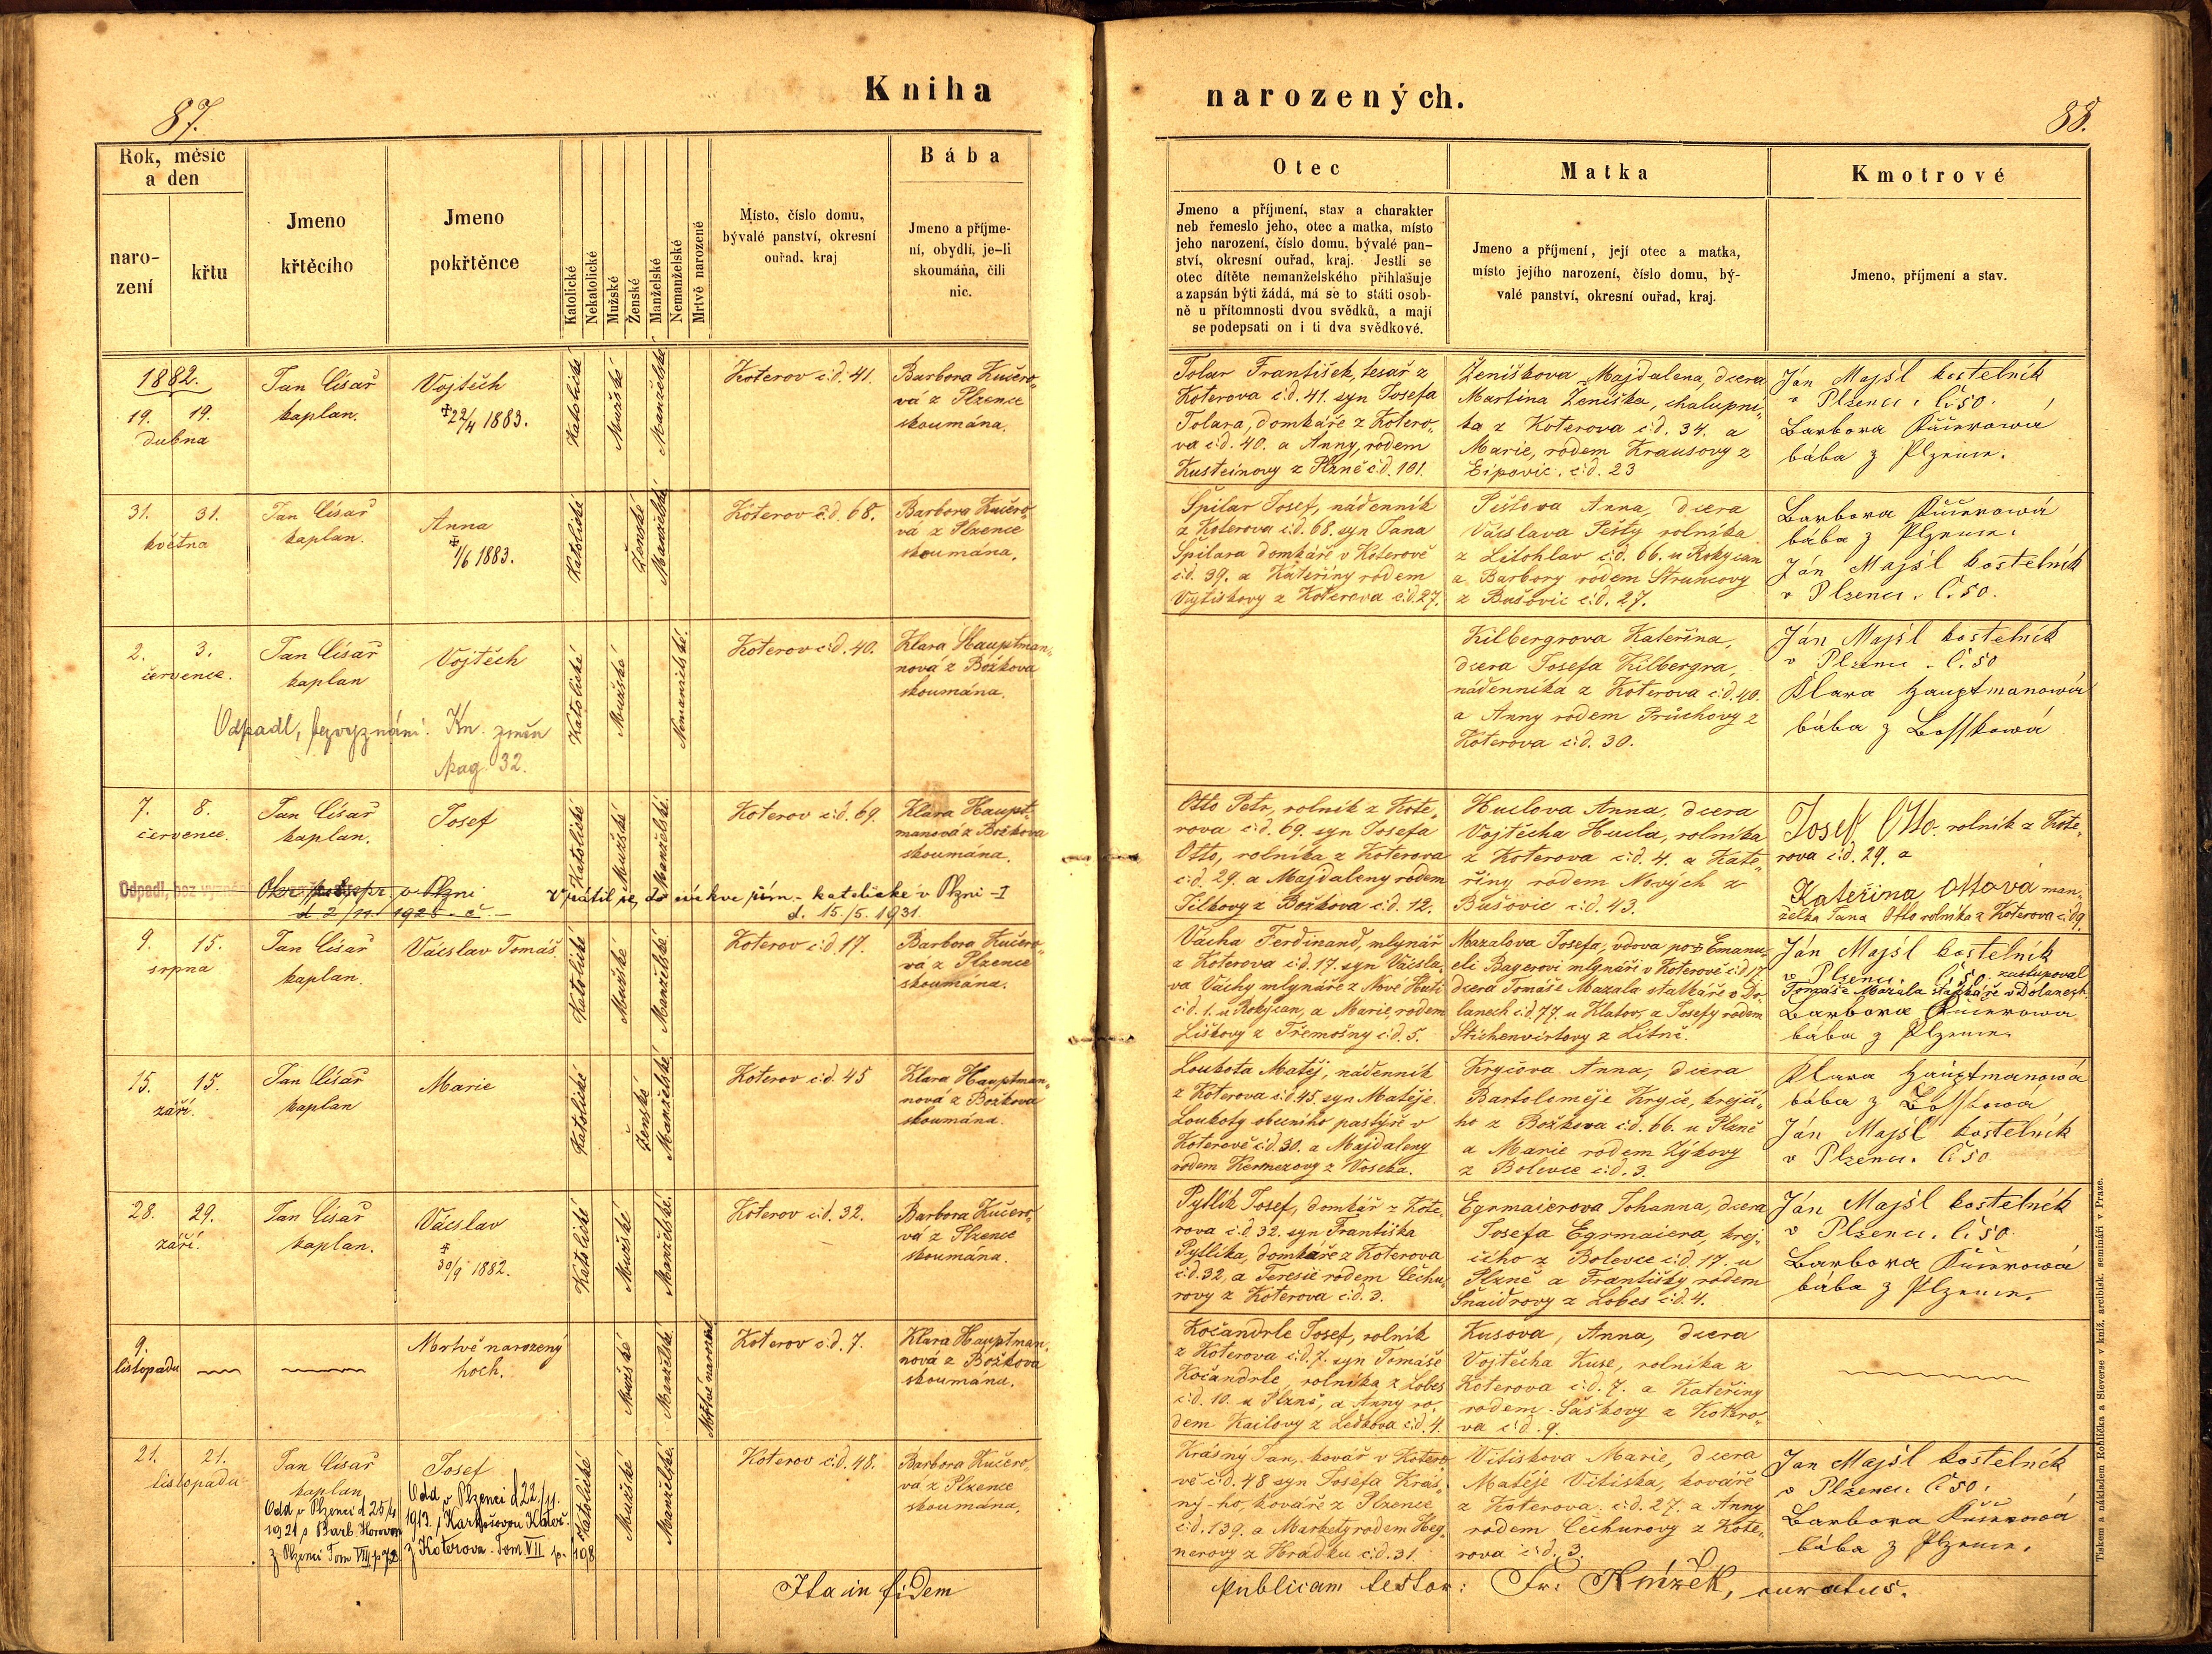 Kniha
narozených.
87.
88.
Rok, měsíc
a den
naro-
zení
křtu
Jmeno
křtěcího
Jmeno
pokřtěnce
Katolické
Nekatolické
Mužské
Ženské
Manželské
Nemanželské
Mrtvě narozené
Místo, číslo domu,
bývalé panství, okresní
ouřad, kraj
Bába
Jmeno a příjme-
ní, obydlí, je-li
skoumána, čili
nic.
Otec
Jmeno a příjmení, stav a charakter
neb řemeslo jeho, otec a matka, místo
jeho narození, číslo domu, bývalé pan-
ství, okresní ouřad, kraj. Jestli se
otec dítěte nemanželského přihlašuje
a zapsán býti žádá, má se to státi osob-
ně u přítomnosti dvou svědků, a mají
se podepsati on i ti dva svědkové.
Matka
Jmeno a příjmení, její otec a matka,
místo jejího narození, číslo domu, bý-
valé panství, okresní ouřad, kraj.
Kmotrové
Jmeno, příjmení a stav.
1882.
19. 19.
dubna
Jan Císař
kaplan.
Vojtěch
22/4 1883.
Katolické
Mužské
Manželské
Koterov č.d. 41.
Barbora Kučero-
vá z Plzence
skoumána.
Tolar František, tesař z
Koterova č.d. 41. syn Josefa
Tolara, domkáře z Kotero-
va č.d. 40. a Anny, rodem
z Plzně č.d. 101.
Ženiškova Majdalena, dcera
Martina Ženiška, chalupní-
ka z Koterova č.d. 34. a
Marie, rodem Krausovy z
Ejpovic. č.d. 23
Ján Majśl kostelník
v Plzenci. č. 50.
Barbora Kučerowá
bába z Plzence.
31. 31.
května
Jan Císař
kaplan.
Anna
1/6 1883.
Katolické
Ženské
Manželské
Koterov č.d. 68.
Barbora Kučero-
vá z Plzence
skoumána.
Špilar Josef, nádenník
z Koterova č.d. 68. syn Jana
Špilara domkáře v Koterově
č.d. 39. a Kateřiny rodem
z Koterova č.d. 27.
Pěstova Anna, dcera
Václava Pěsty rolníka
z Litohlav č.d. 66. u Rokycan
a Barbory rodem Struncovy
z Bušovic č.d. 27.
Barbora Kučerowá
bába z Plzence.
Ján Majśl kostelník
v Plzenci. č. 50.
2. 3.
července.
Jan Císař
kaplan
Vojtěch
Odpadl, bezvyznání. Kn. změn
pag. 32.
Katolické
Mužské
Nemanželské.
Koterov č.d. 40.
Klara Hauptman-
nová z Božkova
skoumána.
Kilbergrova Kateřina,
dcera Josefa Kilbergra,
nádenníka z Koterova č.d. 40.
a Anny rodem Průchovy z
Koterova č.d. 30.
Ján Majśl kostelník
v Plzenci. č. 50
Klara Hauptmanowá
bába z Bosskowá
7. 8.
července.
Jan Císař
kaplan.
Josef
Katolické
Mužské
Manželské.
Koterov č.d. 69.
Klara Haupt-
manová z Božkova
skoumána.
Odpadl, bez
v Plzni
d. 2/11. 1925.
Vrátil se do církve řím.- katolické v Plzni - I
d. 15./5. 1931.
Otto Petr, rolník z Kote-
rova č.d. 69. syn Josefa
Otto, rolníka z Koterova
č.d. 29. a Majdaleny rodem
z Božkova č.d. 12.
Huclova Anna, dcera
Vojtěcha Hucla, rolníka
z Koterova č.d. 4. a Kate-
řiny rodem Nových z
Bušovic č.d. 43.
Josef Otto. rolník z Kote-
rova č.d. 29. a
Kateřina Ottová man-
želka Jana Otto rolníka z Koterova č.d. 9.
9. 15.
srpna
Jan Císař
kaplan.
Václav Tomáš.
Katolické
Mužské
Manželské.
Koterov č.d. 17.
Barbora Kučero-
vá z Plzence
skoumána.
Vácha Ferdinand, mlynář
z Koterova č.d. 17. syn Václa-
va Váchy mlynáře z Nové Huti
č.d. 1. u Rokycan, a Marie, rodem
Liškovy z Třemošny č.d. 5.
Mazalova Josefa, vdova po Emanu-
eli Bayerovi mlynáři v Koterově č.d. 17
dcera Tomáše Mazala statkáře v Do-
lanech č.d. 77. u Klatov, a Josefy rodem
z Litně.
Ján Majśl kostelník
v Plzenci. č. 50. zastupoval
Tomáše Mazala statkáře v Dolanech.
Barbora Kučerowá
bába z Plzence.
15. 15.
září.
Jan Císař
kaplan
Marie
Katolické
Ženské
Manželské
Koterov č.d. 45
Klara Hauptman-
nová z Božkova
skoumána.
Loukota Matěj, nádenník
z Koterova č.d. 45. syn Matěje
Loukoty obecního pastýře v
Koterově č.d. 30. a Majdaleny
rodem z Voseka.
Krycova Anna, dcera
Bartoloměje Kryce, krejčí-
ho z Božkova č.d. 66. u Plzně
a Marie rodem Zýkovy
z Bolevce č.d. 3.
Klara Hauptmanowá
bába z Bosskowá
Ján Majśl kostelník
v Plzenci. č. 50
28. 29.
září.
Jan Císař
kaplan.
Václav
30/9 1882.
Katolické
Mužské
Manželské.
Koterov č.d. 32.
Barbora Kučero-
vá z Plzence
skoumána.
Pytlík Josef, domkář z Kote-
rova č.d. 32. syn Františka
Pytlíka, domkáře z Koterova
č.d. 32, a Teresie rodem Čechu-
rovy z Koterova č.d. 3.
Egrmaierova Johanna, dcera
Josefa Egrmaiera, krej-
čího z Bolevce č.d. 17. u
Plzně a Františky rodem
Šnaidrovy z Lobes č.d. 4.
Ján Majśl kostelník
v Plzenci. č. 50.
Barbora Kučerowá
bába z Plzence.
9.
listopadu
Mrtvě narozený
hoch.
Mužské
Manželské
Mrtvě narozené
Koterov č.d. 7.
Klara Hauptman-
nová z Božkova
skoumána.
Kočandrle Josef, rolník
z Koterova č.d. 7. syn Tomáše
Kočandrle, rolníka z Lobes
č.d. 10. u Plzně, a Anny ro-
dem z Ledkova č.d. 4.
Kusova, Anna, dcera
Vojtěcha Kuse, rolníka z
Koterova č.d. 7. a Kateřiny
rodem Šaškovy z Kotero-
va č.d. 9.
21. 21.
listopadu
Jan Císař
kaplan
Josef
Odd. v Plzenci d 25/4
1921 s Barb.
z Plzenci Tom VIII p 72
Odd. v Plzenci d 22./11.
1913. s
z Koterova. Tom VII p. 198
Katolické
Mužské
Manželské.
Koterov č.d. 48.
Barbora Kučero-
vá z Plzence
skoumána.
Krásný Jan, kovář v Kotero-
vě č.d. 48 syn Josefa Krás-
ný-ho, kováře z Plzence
č.d. 139. a Markety rodem Heg-
nerovy z Hrádku č.d. 31.
Vitiskova Marie, dcera
Matěje Vitiska, kováře
z Koterova č.d. 27. a Anny
rodem Čechurovy z Kote-
rova č.d. 3.
Jan Majśl kostelník
v Plzenci. č. 50.
Barbora Kučerowá
bába z Plzence.
Ita in fidem
publicam testor: Fr. Knížek, curatus.
Tiskem a nákladem Rohlíčka a Sieverse v kníž. arcibisk. semináři v Praze.